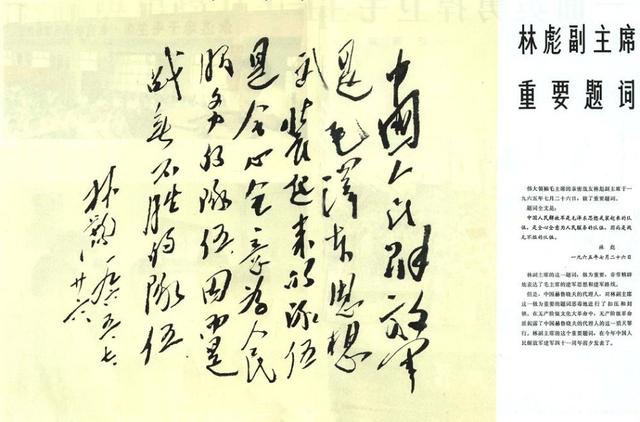 中國人民解放军
是毛澤东思想
武装起来的隊伍
是全心全意为人民
服务的隊伍,因而是
战无不胜的隊伍
林彪 一九六五、七、
廿六
林彪副主席
重要题词
伟大领袖毛主席的亲密战友林彪副主席于一
九六五年七月二十六日,做了重要题词。
题词全文是:
中国人民解放军是毛泽东思想武装起来的队
伍,是全心全意为人民服务的队伍,因而是战
无不胜的队伍。
林 彪
一九六五年七月二十六日
林副主席的这一题词,极为重要,非常精辟
地表达了毛主席的建军思想和建军路线。
但是,中国赫鲁晓夫的代理人,对林副主席
这一极为重要的题词恶毒地进行了扣压和封
锁。在无产阶级文化大革命中,无产阶级革命
派揭露了中国赫鲁晓夫的代理人的这一滔天罪
行。林副主席的这个重要题词,在今年中国人
民解放军建军四十一周年前夕发表了。